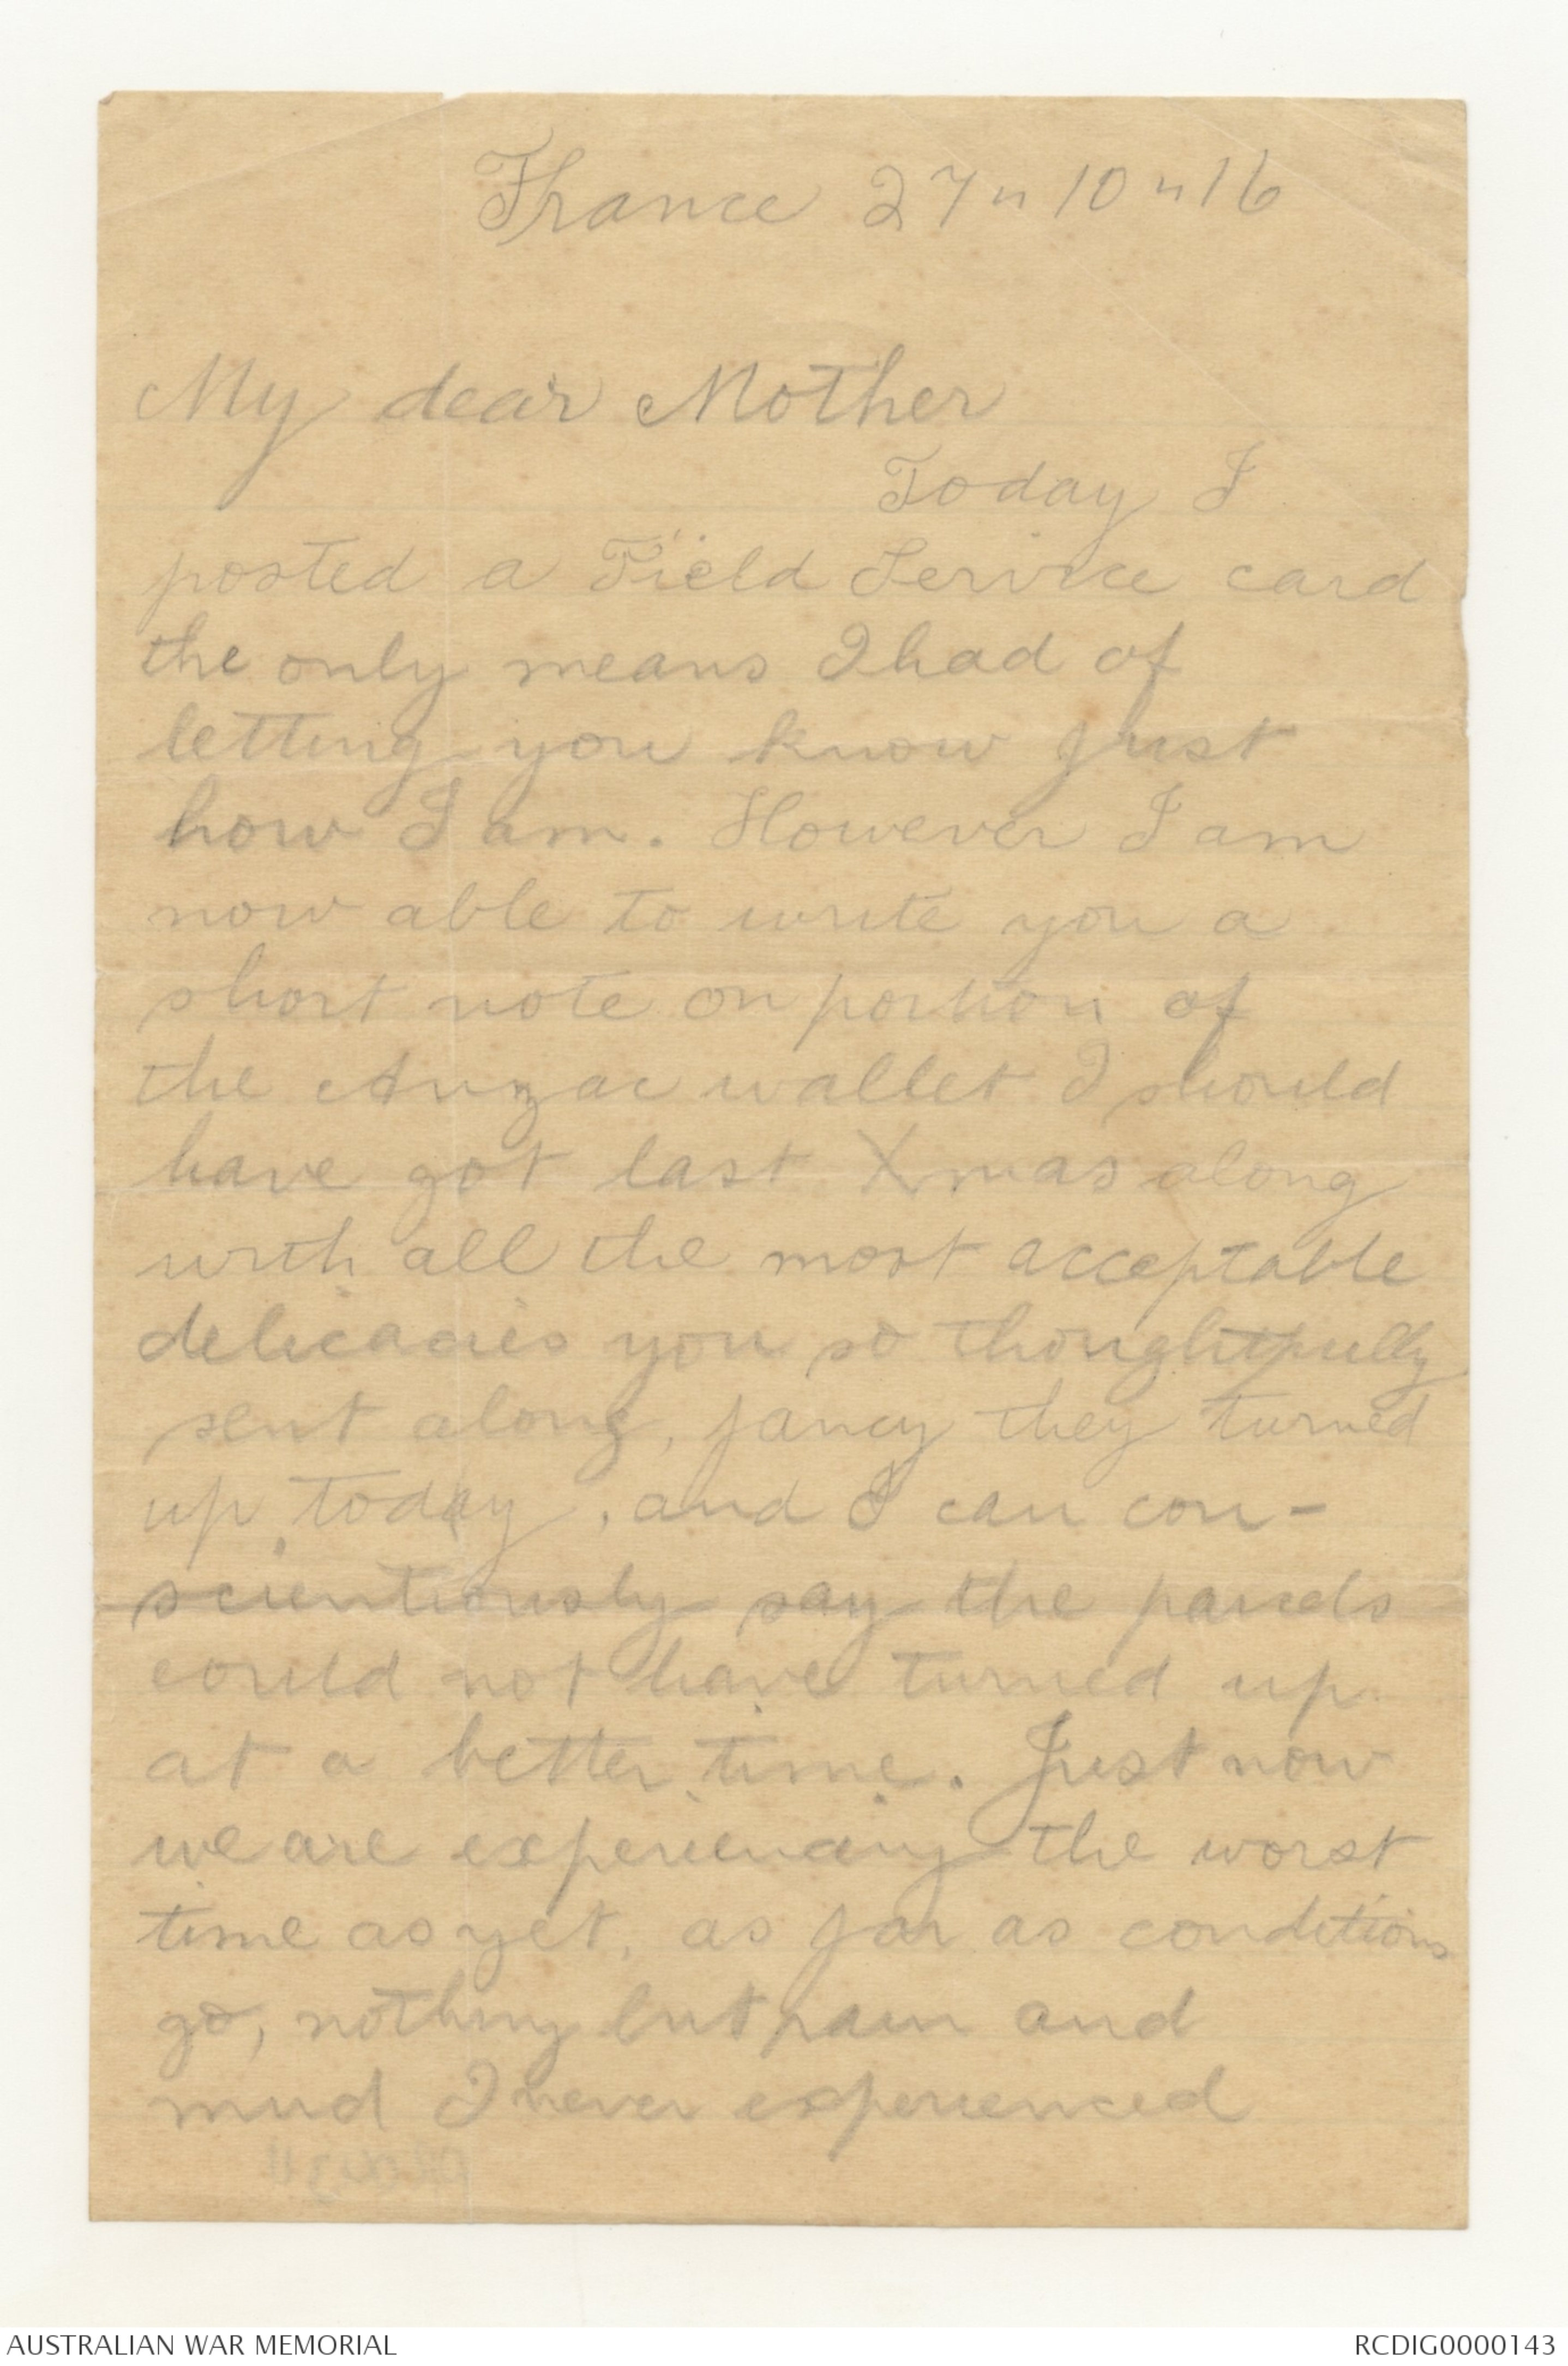 France 27 " 10 " 16
My dear Mother
Today I
posted a Field Service card
the only means I had of
letting you know just
how I am. However I am
now able to write you a
short note on portion of
the Anzac wallet I should
have got last Xmas along
with all the most acceptable
delicacies you so thoughtfully
sent along, fancy they turned
up today, and I can con-
scientiously say the parcels
could not have turned up
at a better time. Just now
we are experiencing the worst
time as yet, as far as conditions
go, nothing but rain and
mud I never experienced
AUSTRALIAN WAR MEMORIAL
RCDIG0000143